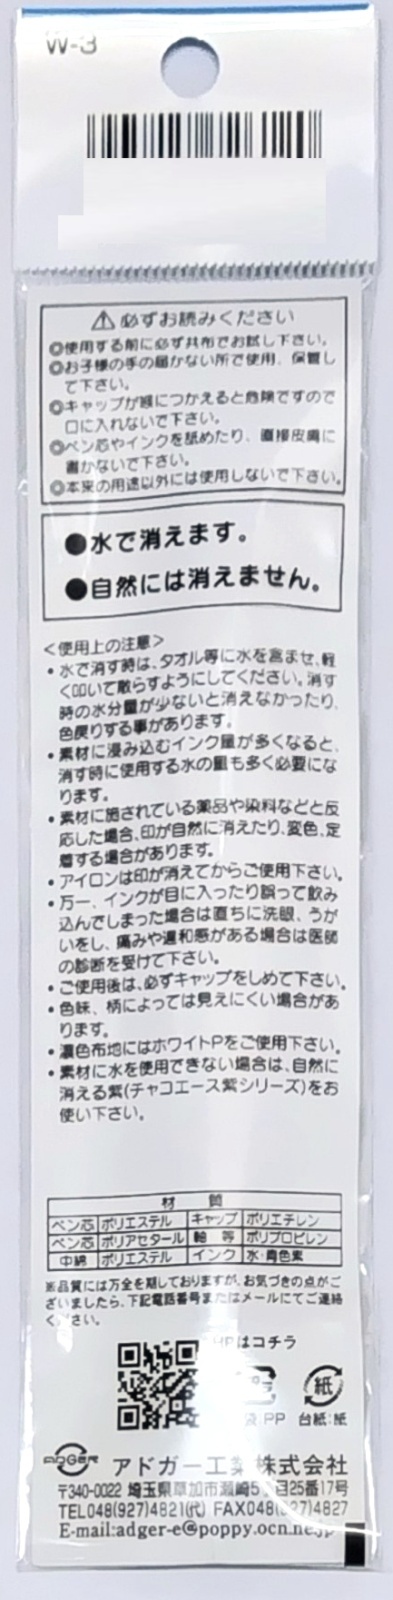 W-3
⚠必ずお読みください
◎使用する前に必ず共布でお試し下さい。
◎お子様の手の届かない所で使用、保管し
て下さい。
◎キャップが喉につかえると危険ですので
口に入れないで下さい。
◎ペン芯やインクを舐めたり、直接皮膚に
書かないで下さい。
◎本来の用途以外には使用しないで下さい。
●水で消えます。
●自然には消えません。
<使用上の注意>
・水で消す時は、タオル等に水を含ませ、軽
く叩いて散らすようにしてください。消す
時の水分量が少ないと消えなかったり、
色戻りする事があります。
・素材に浸み込むインク量が多くなると、
消す時に使用する水の量も多く必要にな
ります。
・素材に施されている薬品や染料などと反
応した場合、印が自然に消えたり、変色、定
着する場合があります。
・アイロンは印が消えてからご使用下さい。
・万一、インクが目に入ったり誤って飲み
込んでしまった場合は直ちに洗眼、うが
いをし、痛みや違和感がある場合は医師
の診断を受けて下さい。
・ご使用後は、必ずキャップをしめて下さい。
・色味、柄によっては見えにくい場合があ
ります。
・濃色布地にはホワイトPをご使用下さい。
・素材に水を使用できない場合は、自然に
消える紫(チャコエース紫シリーズ)をお
使い下さい。
材 質
ペン芯 ポリエステル キャップ ポリエチレン
ペン芯 ポリアセタール 軸 等 ポリプロピレン
中綿 ポリエステル インク 水・青色素
※品質には万全を期しておりますが、お気づきの点がご
ざいましたら、下記電話番号またはメールにてご連絡
ください。
HPはコチラ
紙
袋:PP 台紙:紙
ADGER アドガー工業株式会社
〒340-0022 埼玉県草加市瀬崎5丁目25番17号
TEL048(927)4821(代) FAX048(927)4827
E-mail:adger-e@poppy.ocn.ne.jp